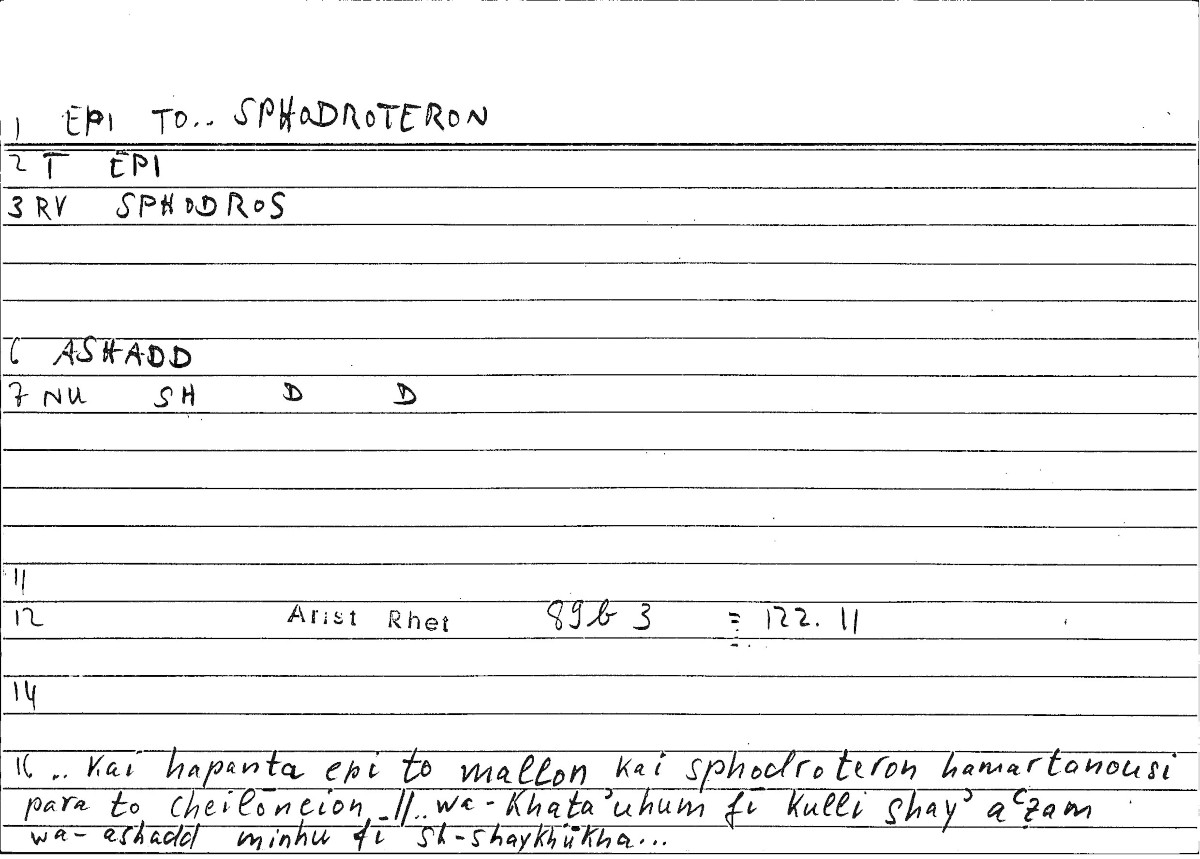 1 EPI TO.. SPHODROTERON
2 T EPI
3 RV SPHODROS
6 ASHADD
7 NU SH D D
11
12 Arist Rhet 89b 3 = 122. 11
14
16 .. Kai hapanta epi to mallon kai sphodroteron hamartanousi
para to cheilōneion _//.. wa-khaṭa'uhum fī kulli shay' aʿẓam
wa-ashadd minhu fī sh-shaykhūkha...